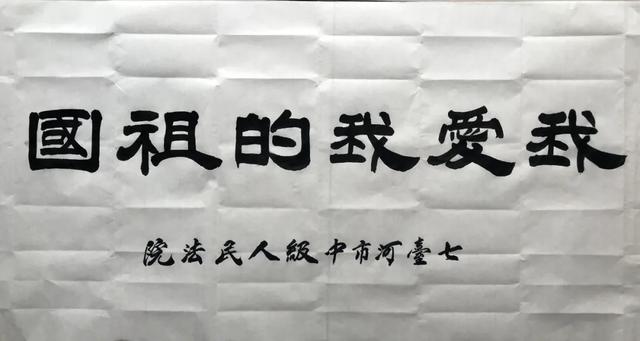 我愛我的祖國
七臺河市中級人民法院